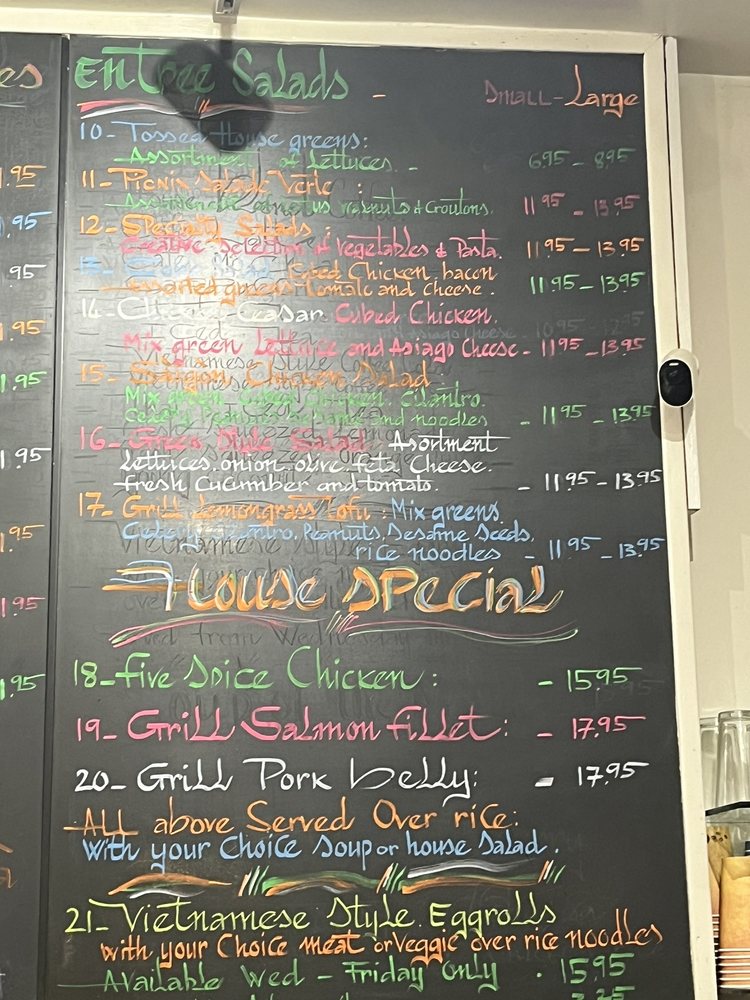 es
Entree Salads - Small - Large
10- Tossed House greens:
Assortment of Lettuces - 6.95 - 8.95
.95
11- Picnix Salade Verte :
walnuts & Croutons. 11.95 - 13.95
.95
12- Specialty Salads :
Creative Selection of Vegetables & Pasta. 11.95 - 13.95
.95
13- Cubed Chicken, bacon
assorted greens tomato and cheese. 11.95 - 13.95
.95
14- Ceasar Cubed Chicken.
Mix green Lettuce and Asiago Cheese - 11.95 - 13.95
1.95
15- Saigon Chicken Salad
Mix green, Cubed Chicken, cilantro,
and noodles - 11.95 - 13.95
1.95
16- Green Style Salad: Asortment
Lettuces, onion, olive, feta Cheese.
fresh Cucumber and tomato. - 11.95 - 13.95
.95
17- Grill Lemongrass Tofu: Mix greens,
Celery, Cilantro, Peanuts, Sesame Seeds,
rice noodles - 11.95 - 13.95
House Special
1.95
18- five Spice Chicken : - 15.95
1.95
19- Grill Salmon fillet: - 17.95
20- Grill Pork belly: - 17.95
- All above Served Over rice:
With your Choice Soup or house Salad.
21- Vietnamese Style Eggrolls
with your Choice meat or Veggie over rice noodles
- Available Wed - Friday Only . 15.95